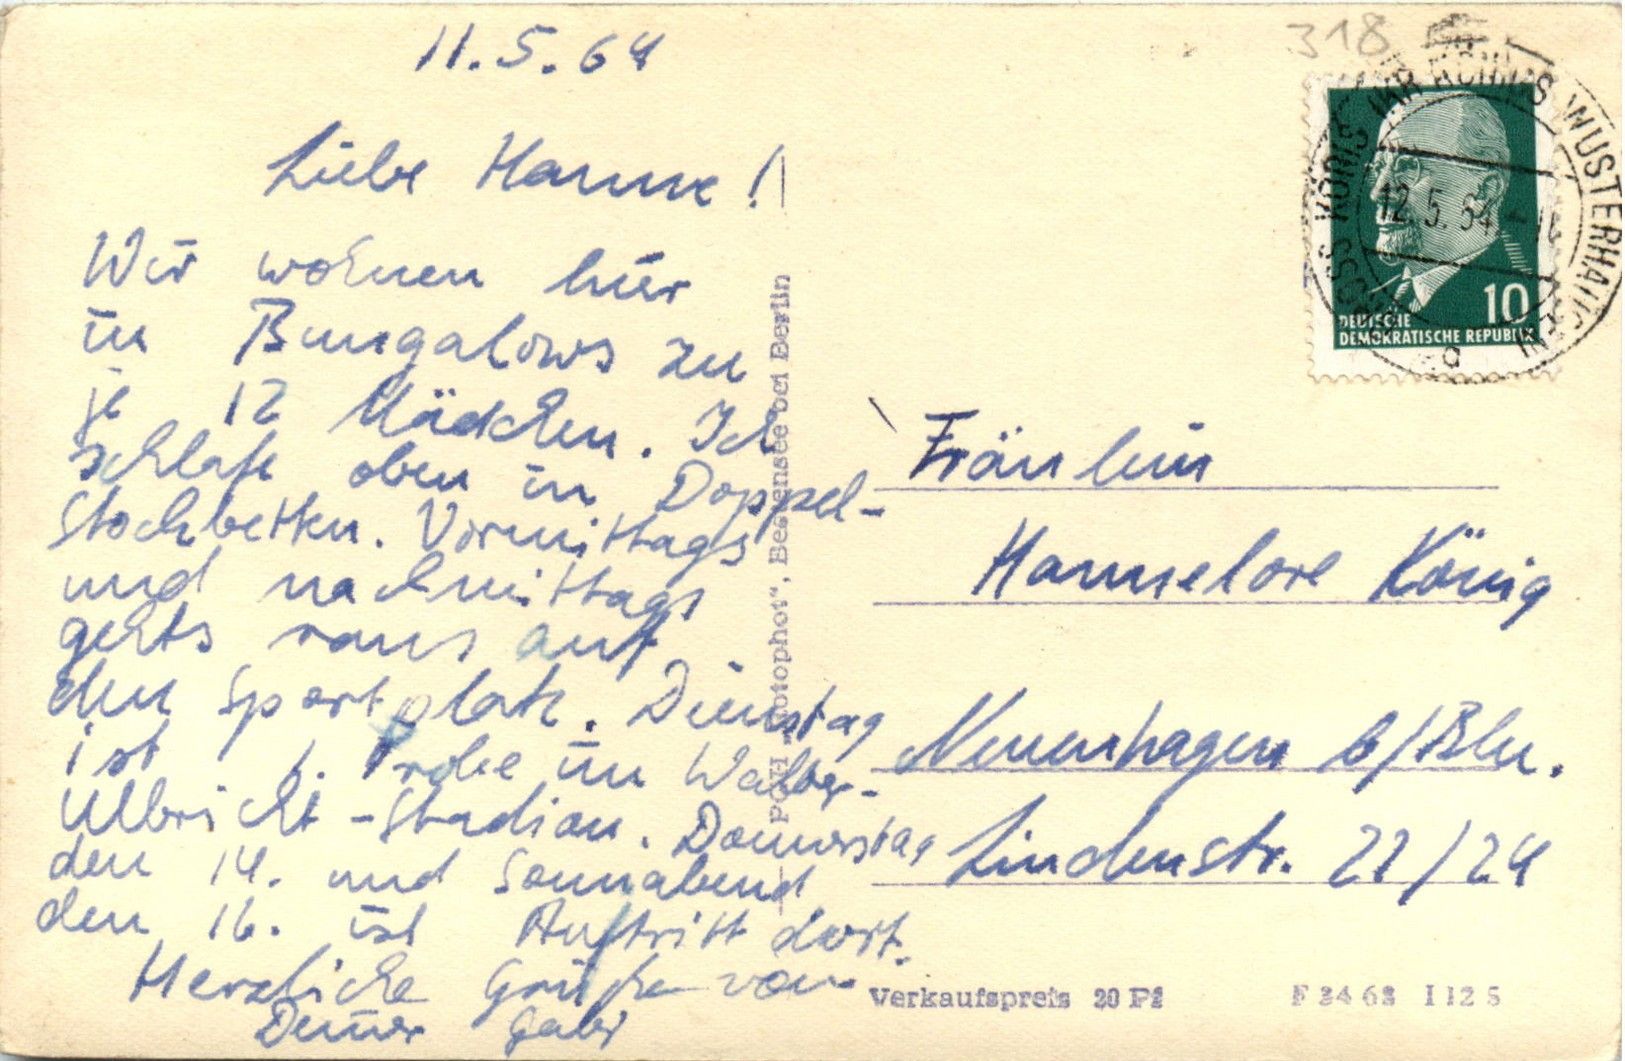 11.5.64
Liebe Hanne!
Wir wohnen hier
in Bungalows zu
je 12 Mädchen. Ich
schlafe oben in Doppel-
Stockbetten. Vormittags
und nachmittags
gehts raus auf
den Sportplatz. Dienstag
ist 1. Probe im Walter-
Ulbricht-Stadion. Donnerstag
den 14. und Sonnabend
den 16. ist Auftritt dort.
Herzliche Grüße von
Deiner Gabi
PGH „Fotophot“, Bestensee bei Berlin
318
GROSS KÖRIS ÜBER KÖNIGS WUSTERHAUSEN
12.5.64
10
DEUTSCHE
DEMOKRATISCHE REPUBLIK
Fräulein
Hannelore König
Neuenhagen b/Bln.
Lindenstr. 22/24
Verkaufspreis 20 Pf
F 34 63 I 12 S